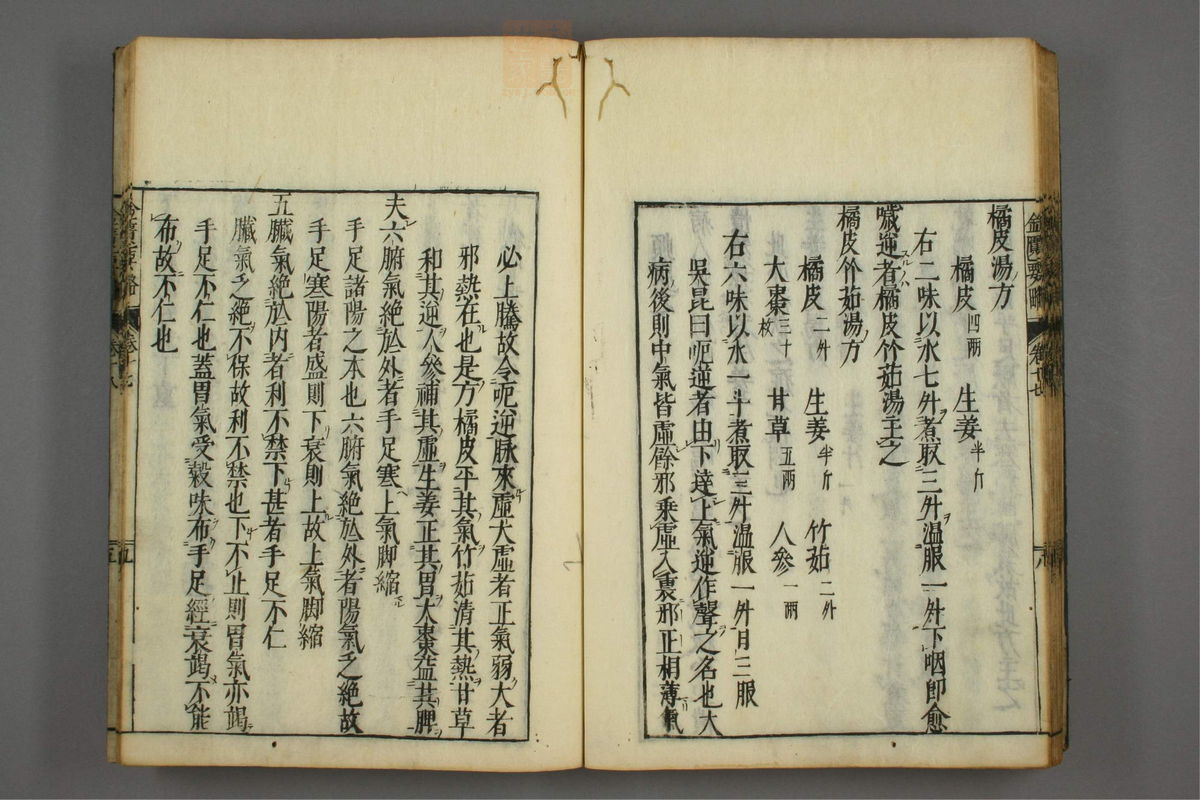 橘皮湯方
橘皮四兩　生姜半斤
右二味以水七升煮取三升温服一升下咽即愈
噦逆者橘皮竹茹湯主之
橘皮竹茹湯方
橘皮二升　生姜半斤　竹茹二升
大棗三十枚　甘草五兩　人參一兩
右六味以水一斗煮取三升温服一升日三服
吳昆曰呃逆者由下達上氣逆作聲之名也大
病後則中氣皆虛餘邪乘虛入裏邪正相薄氣
必上騰故令呃逆脉來虛大虛者正氣弱大者
邪熱在也是方橘皮平其氣竹茹清其熱甘草
和其逆人參補其虛生姜正其胃大棗益其脾
夫六腑氣絕於外者手足寒上氣脚縮
手足諸陽之本也六腑氣絕於外者陽氣乏絕故
手足寒陽者盛則下衰則上故上氣脚縮
五臟氣絕於內者利不禁下甚者手足不仁
臟氣乏絕不保故利不禁也下不止則胃氣亦竭
手足不仁也蓋胃氣受穀味布手足經衰竭不能
布故不仁也
金匱要略　卷十七